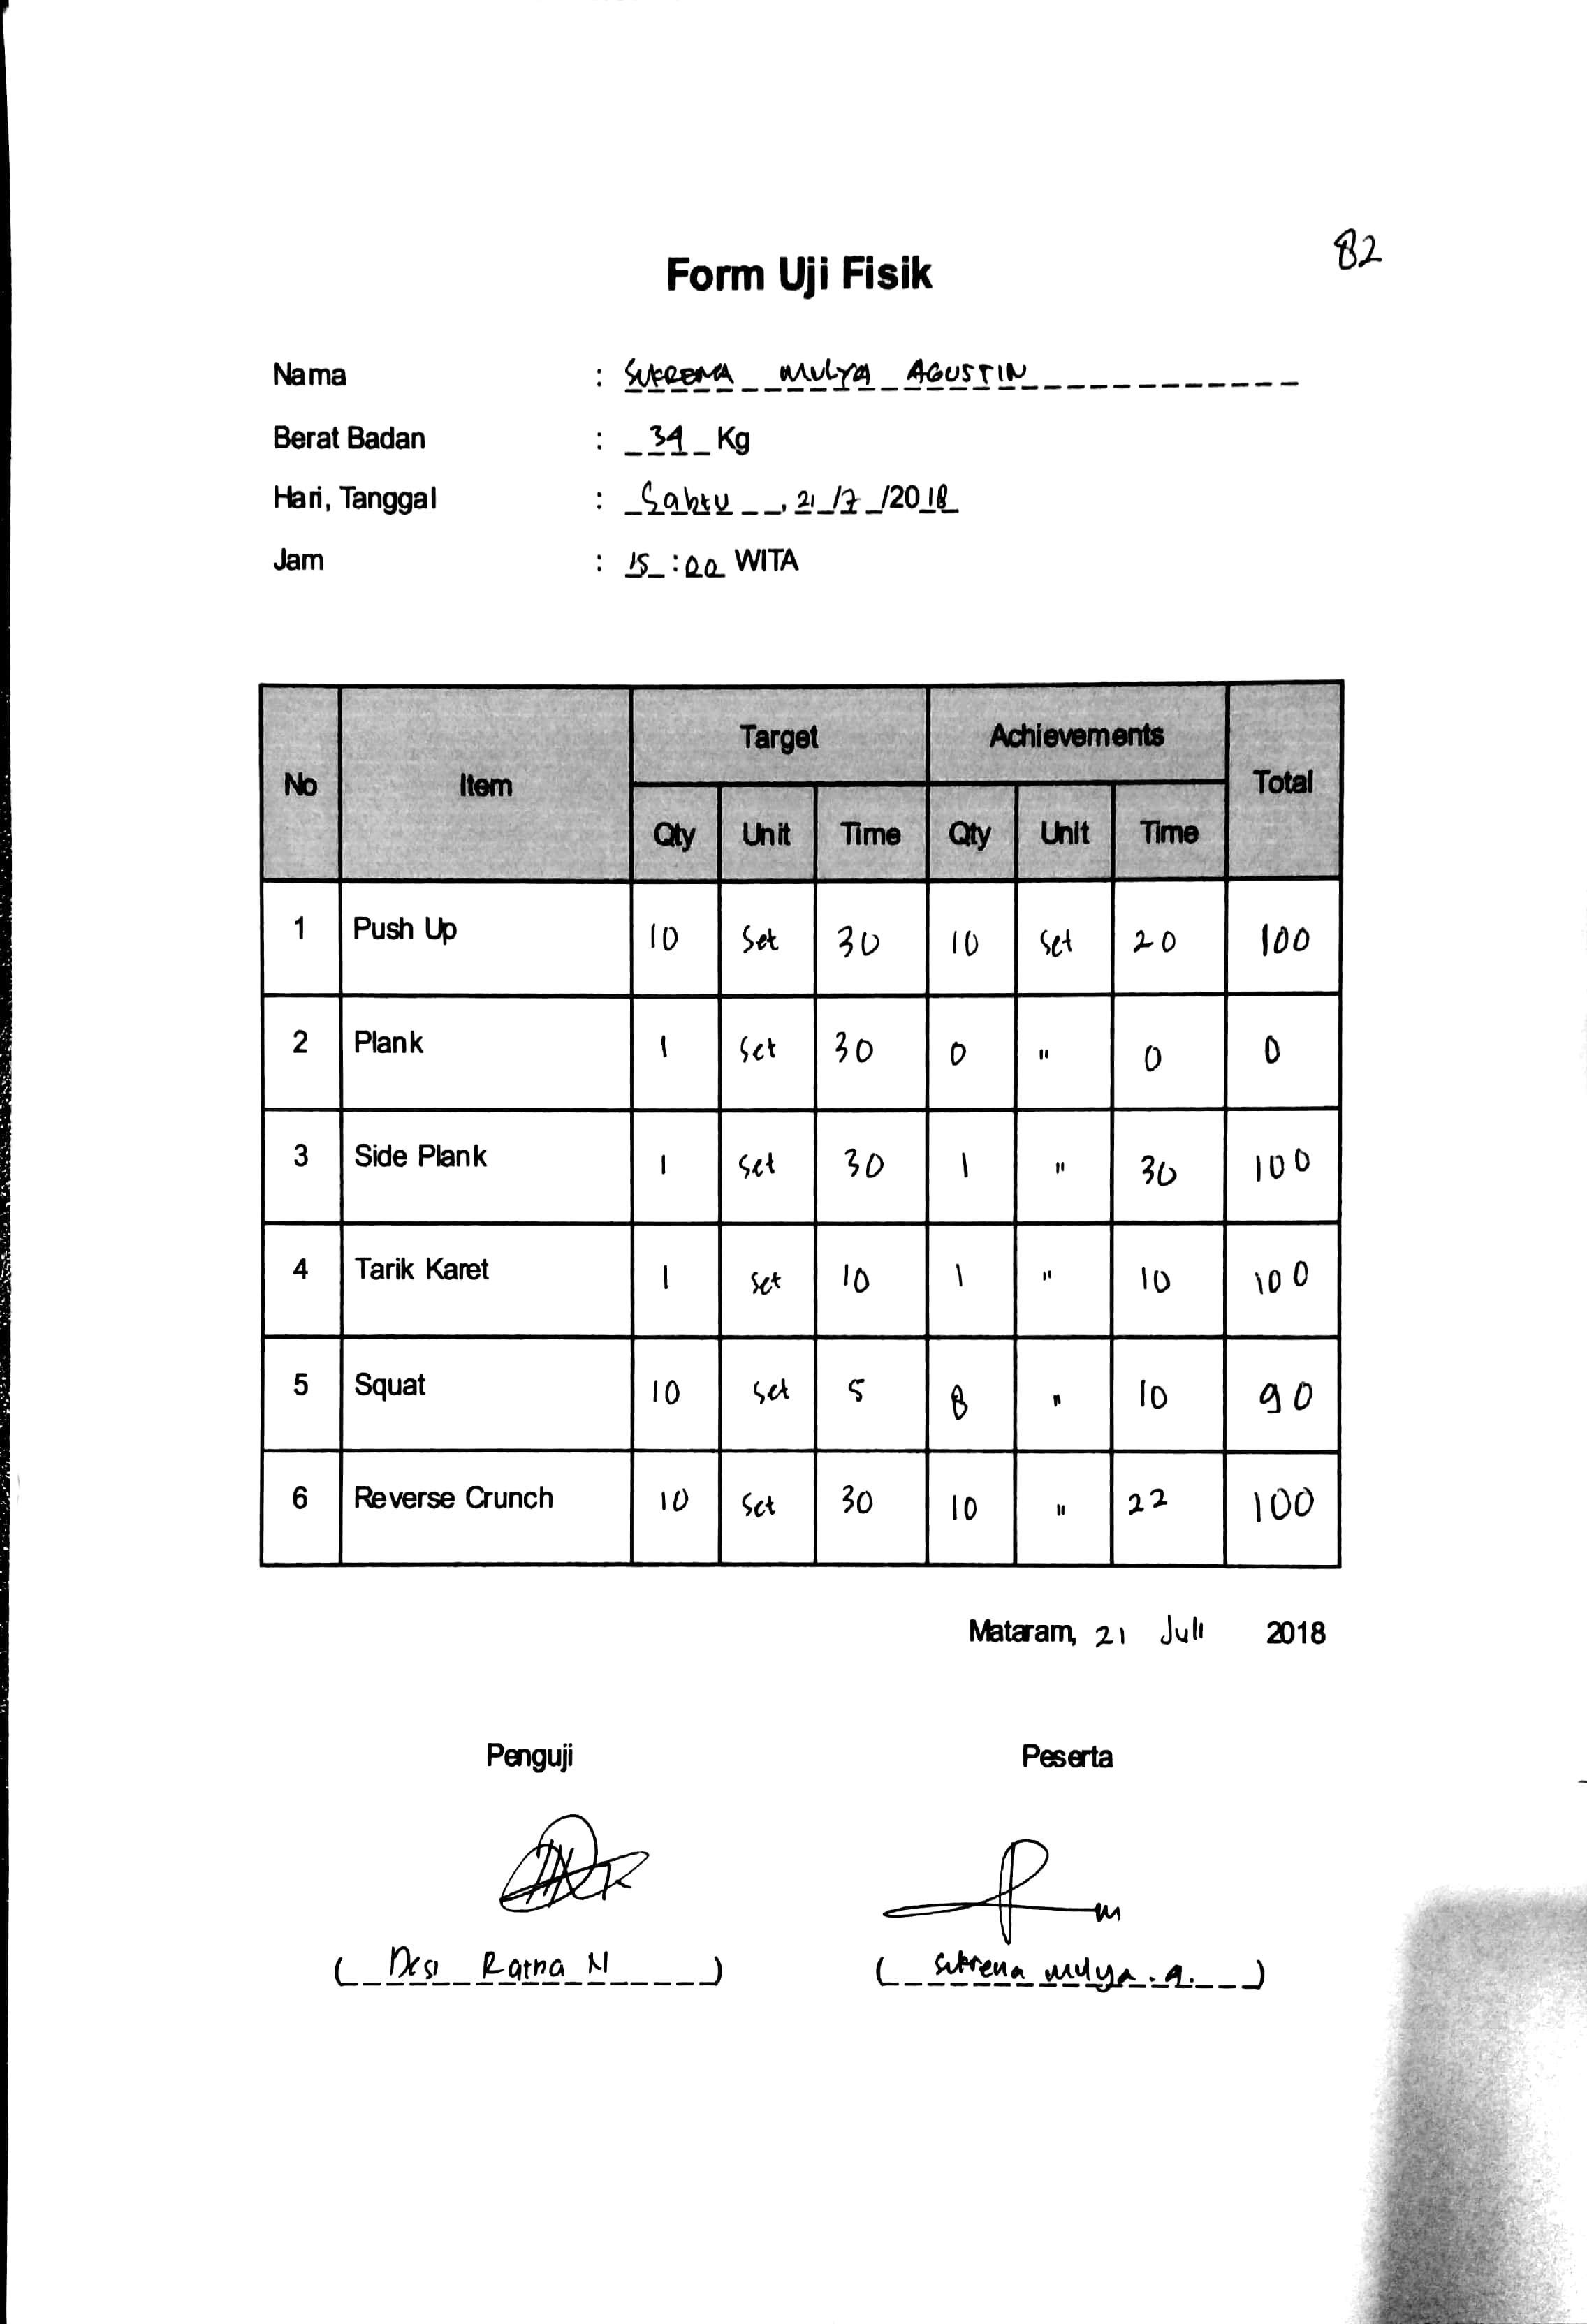 82
Form Uji Fisik
Nama : SUKRENA MULYA AGUSTIN
Berat Badan : 34 Kg
Hari, Tanggal : Sabtu, 21/7/2018
Jam : 15:00 WITA
No Item Target Achievements Total
Qty Unit Time Qty Unit Time
1 Push Up 10 Set 30 10 Set 20 100
2 Plank 1 Set 30 0 " 0 0
3 Side Plank 1 Set 30 1 " 30 100
4 Tarik Karet 1 Set 10 1 " 10 100
5 Squat 10 Set 5 8 " 10 90
6 Reverse Crunch 10 Set 30 10 " 22 100
Mataram, 21 Juli 2018
Penguji Peserta
(Desi Ratna N) (Sukrena mulya.A.)